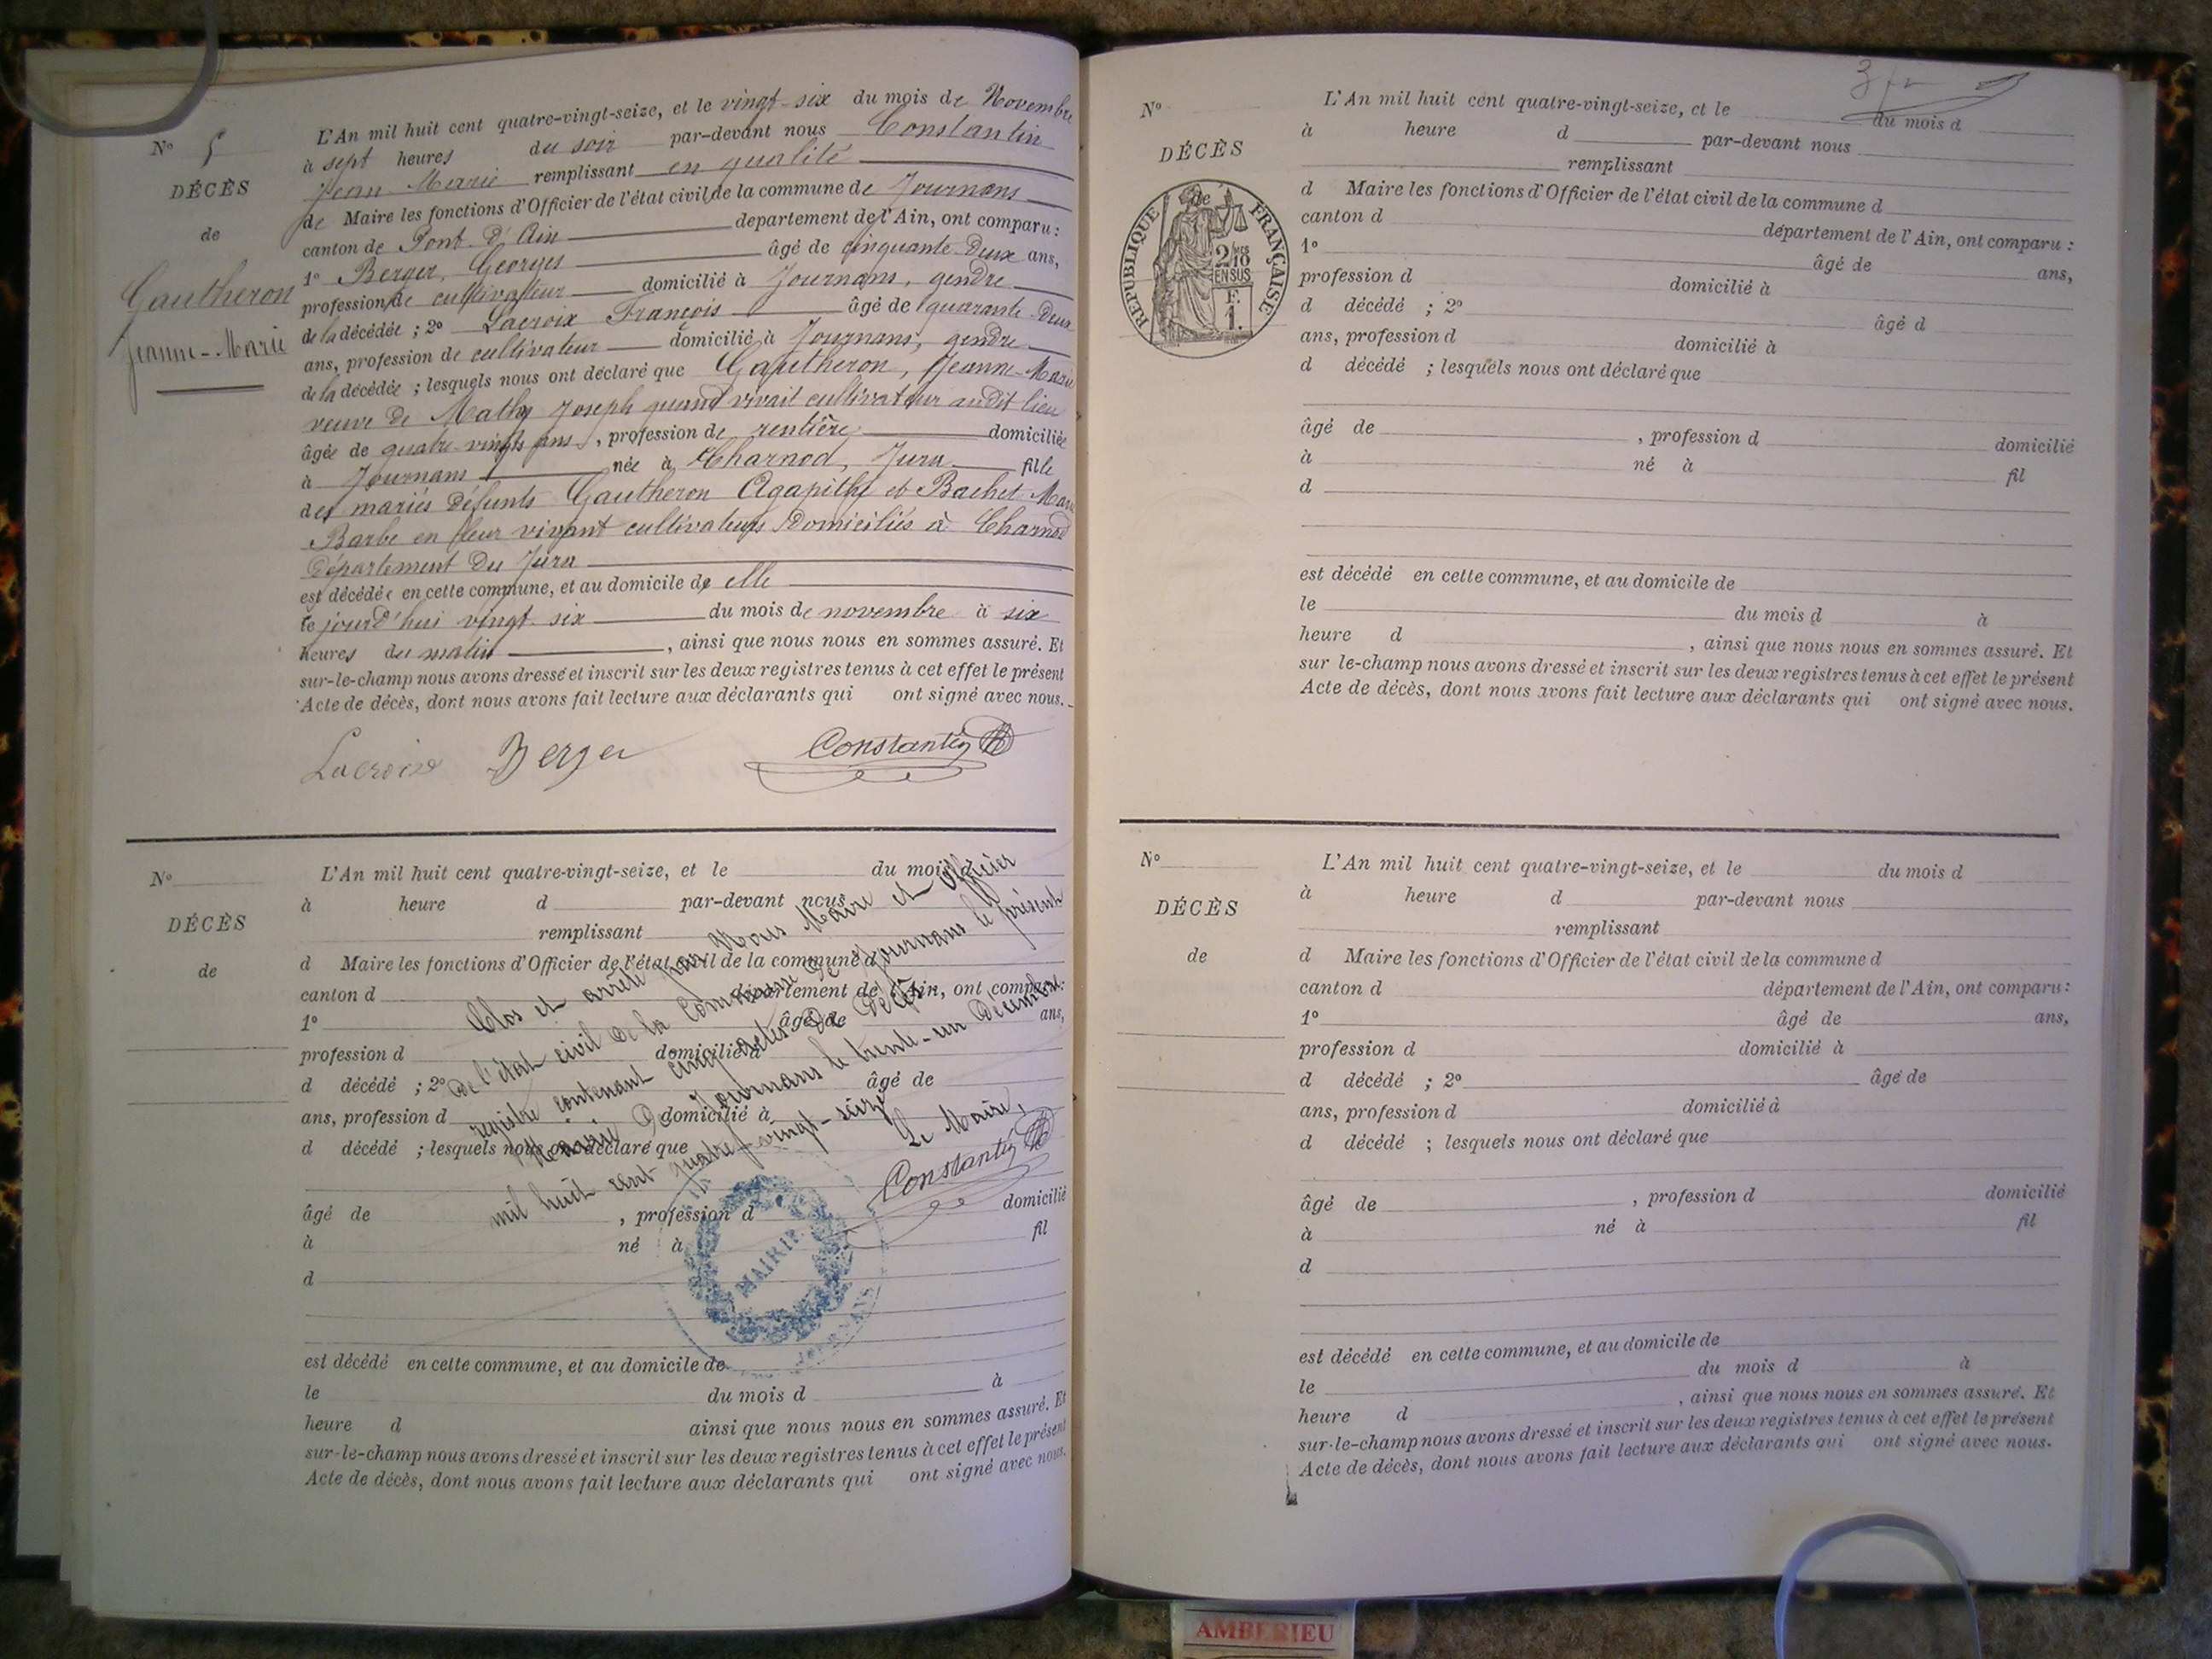 N° 5
DÉCÈS
de
Gautheron
Jeanne-Marie
L'An mil huit cent quatre-vingt-seize, et le vingt-six du mois de Novembre
à sept heures du soir par-devant nous Constantin
Jean Marie remplissant en qualité
de Maire les fonctions d'Officier de l'état civil de la commune de Journans
canton de Pont-d'Ain departement de l'Ain, ont comparu :
1° Berger, Georges âgé de cinquante-deux ans,
profession de cultivateur domicilié à Journans, gendre
de la décédée ; 2° Lacroix François âgé de quarante-deux
ans, profession de cultivateur domicilié à Journans, gendre
de la décédée ; lesquels nous ont déclaré que Gautheron, Jeanne-Marie
veuve de Mathy Joseph quand vivait cultivateur audit lieu
âgée de quatre-vingts ans, profession de rentière domiciliée
à Journans née à Charnod, Jura fille
des mariés défunts Gautheron Agapithe et Bachet Marie
Barbe en leur vivant cultivateurs domiciliés à Charnod
département du Jura
est décédée en cette commune, et au domicile de elle
le jourd'hui vingt-six du mois de novembre à six
heures du matin, ainsi que nous nous en sommes assuré. Et
sur-le-champ nous avons dressé et inscrit sur les deux registres tenus à cet effet le présent
Acte de décès, dont nous avons fait lecture aux déclarants qui ont signé avec nous.
Lacroix Berger Constantin
N°
DÉCÈS
de
L'An mil huit cent quatre-vingt-seize, et le du mois d
à heure d par-devant nous
remplissant
d Maire les fonctions d'Officier de l'état civil de la commune d
canton d département de l'Ain, ont comparu :
1° âgé de ans,
profession d domicilié à
d décédé ; 2° âgé de
ans, profession d domicilié à
d décédé ; lesquels nous ont déclaré que
âgé de , profession d domicilié
à né à fil
d
est décédé en cette commune, et au domicile de
le du mois d à
heure d ainsi que nous nous en sommes assuré. Et
sur-le-champ nous avons dressé et inscrit sur les deux registres tenus à cet effet le présent
Acte de décès, dont nous avons fait lecture aux déclarants qui ont signé avec nous.
Clos et arrêté par Nous Maire et Officier
de l'état civil de la Commune de Journans le présent
registre contenant cinq actes de décès
Mairie de Journans le trente-un Décembre
mil huit cent quatre-vingt-seize
Le Maire,
Constantin
MAIRIE
JOURNANS
N°
DÉCÈS
de
RÉPUBLIQUE FRANÇAISE
2/10
EN SUS
F.
1.
L'An mil huit cent quatre-vingt-seize, et le du mois d
à heure d par-devant nous
remplissant
d Maire les fonctions d'Officier de l'état civil de la commune d
canton d département de l'Ain, ont comparu :
1° âgé de ans,
profession d domicilié à
d décédé ; 2° âgé d
ans, profession d domicilié à
d décédé ; lesquels nous ont déclaré que
âgé de , profession d domicilié
à né à fil
d
est décédé en cette commune, et au domicile de
le du mois d à
heure d , ainsi que nous nous en sommes assuré. Et
sur le-champ nous avons dressé et inscrit sur les deux registres tenus à cet effet le présent
Acte de décès, dont nous avons fait lecture aux déclarants qui ont signé avec nous.
N°
DÉCÈS
de
L'An mil huit cent quatre-vingt-seize, et le du mois d
à heure d par-devant nous
remplissant
d Maire les fonctions d'Officier de l'état civil de la commune d
canton d département de l'Ain, ont comparu :
1° âgé de ans,
profession d domicilié à
d décédé ; 2° âgé de
ans, profession d domicilié à
d décédé ; lesquels nous ont déclaré que
âgé de , profession d domicilié
à né à fil
d
est décédé en cette commune, et au domicile de
le du mois d à
heure d , ainsi que nous nous en sommes assuré. Et
sur-le-champ nous avons dressé et inscrit sur les deux registres tenus à cet effet le présent
Acte de décès, dont nous avons fait lecture aux déclarants qui ont signé avec nous.
AMBERIEU